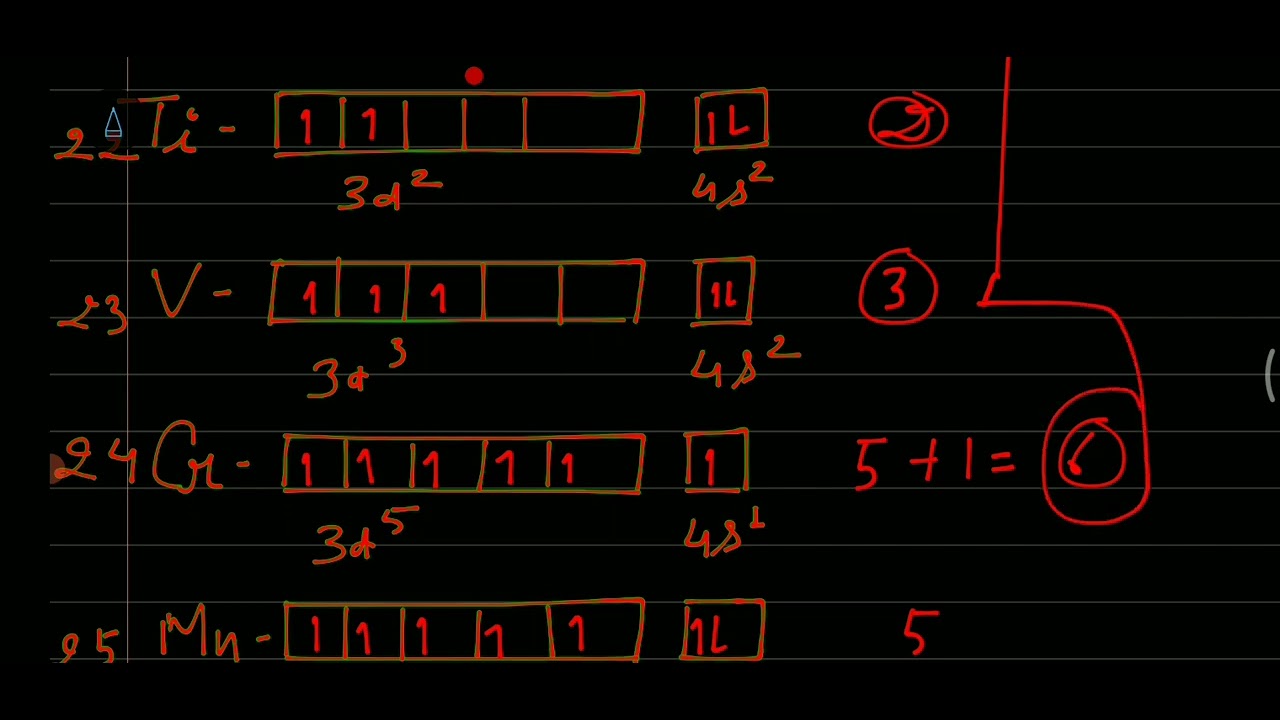 22 Ti - 1 1 1L 2
3d² 4s²
23 V - 1 1 1 1L 3
3d³ 4s²
24 Cr - 1 1 1 1 1 1 5 + 1 = 6
3d⁵ 4s¹
25 Mn - 1 1 1 1 1 1L 5
(